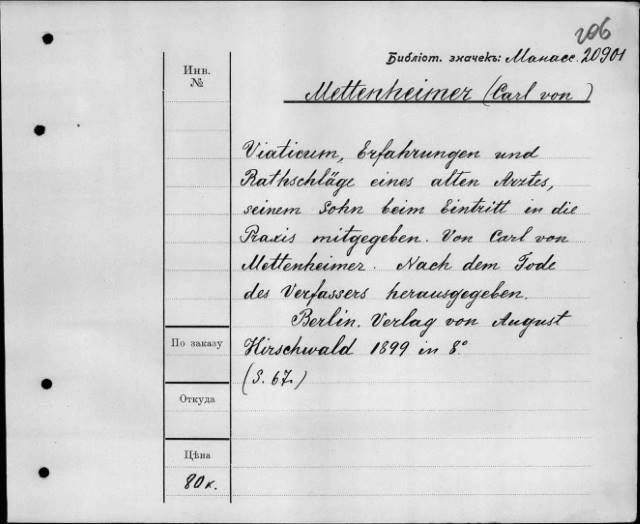 206
Библіот. значекъ: Манасс. 20901
Инв.
№
Mettenheimer (Carl von)
Viaticum, Erfahrungen und
Rathschläge eines alten Arztes,
seinem Sohn beim Eintritt in die
Praxis mitgegeben. Von Carl von
Mettenheimer. Nach dem Tode
des Verfassers herausgegeben.
Berlin. Verlag von August
По заказу
Hirschwald 1899 in 8°
(S. 67.)
Откуда
Цѣна
80 к.